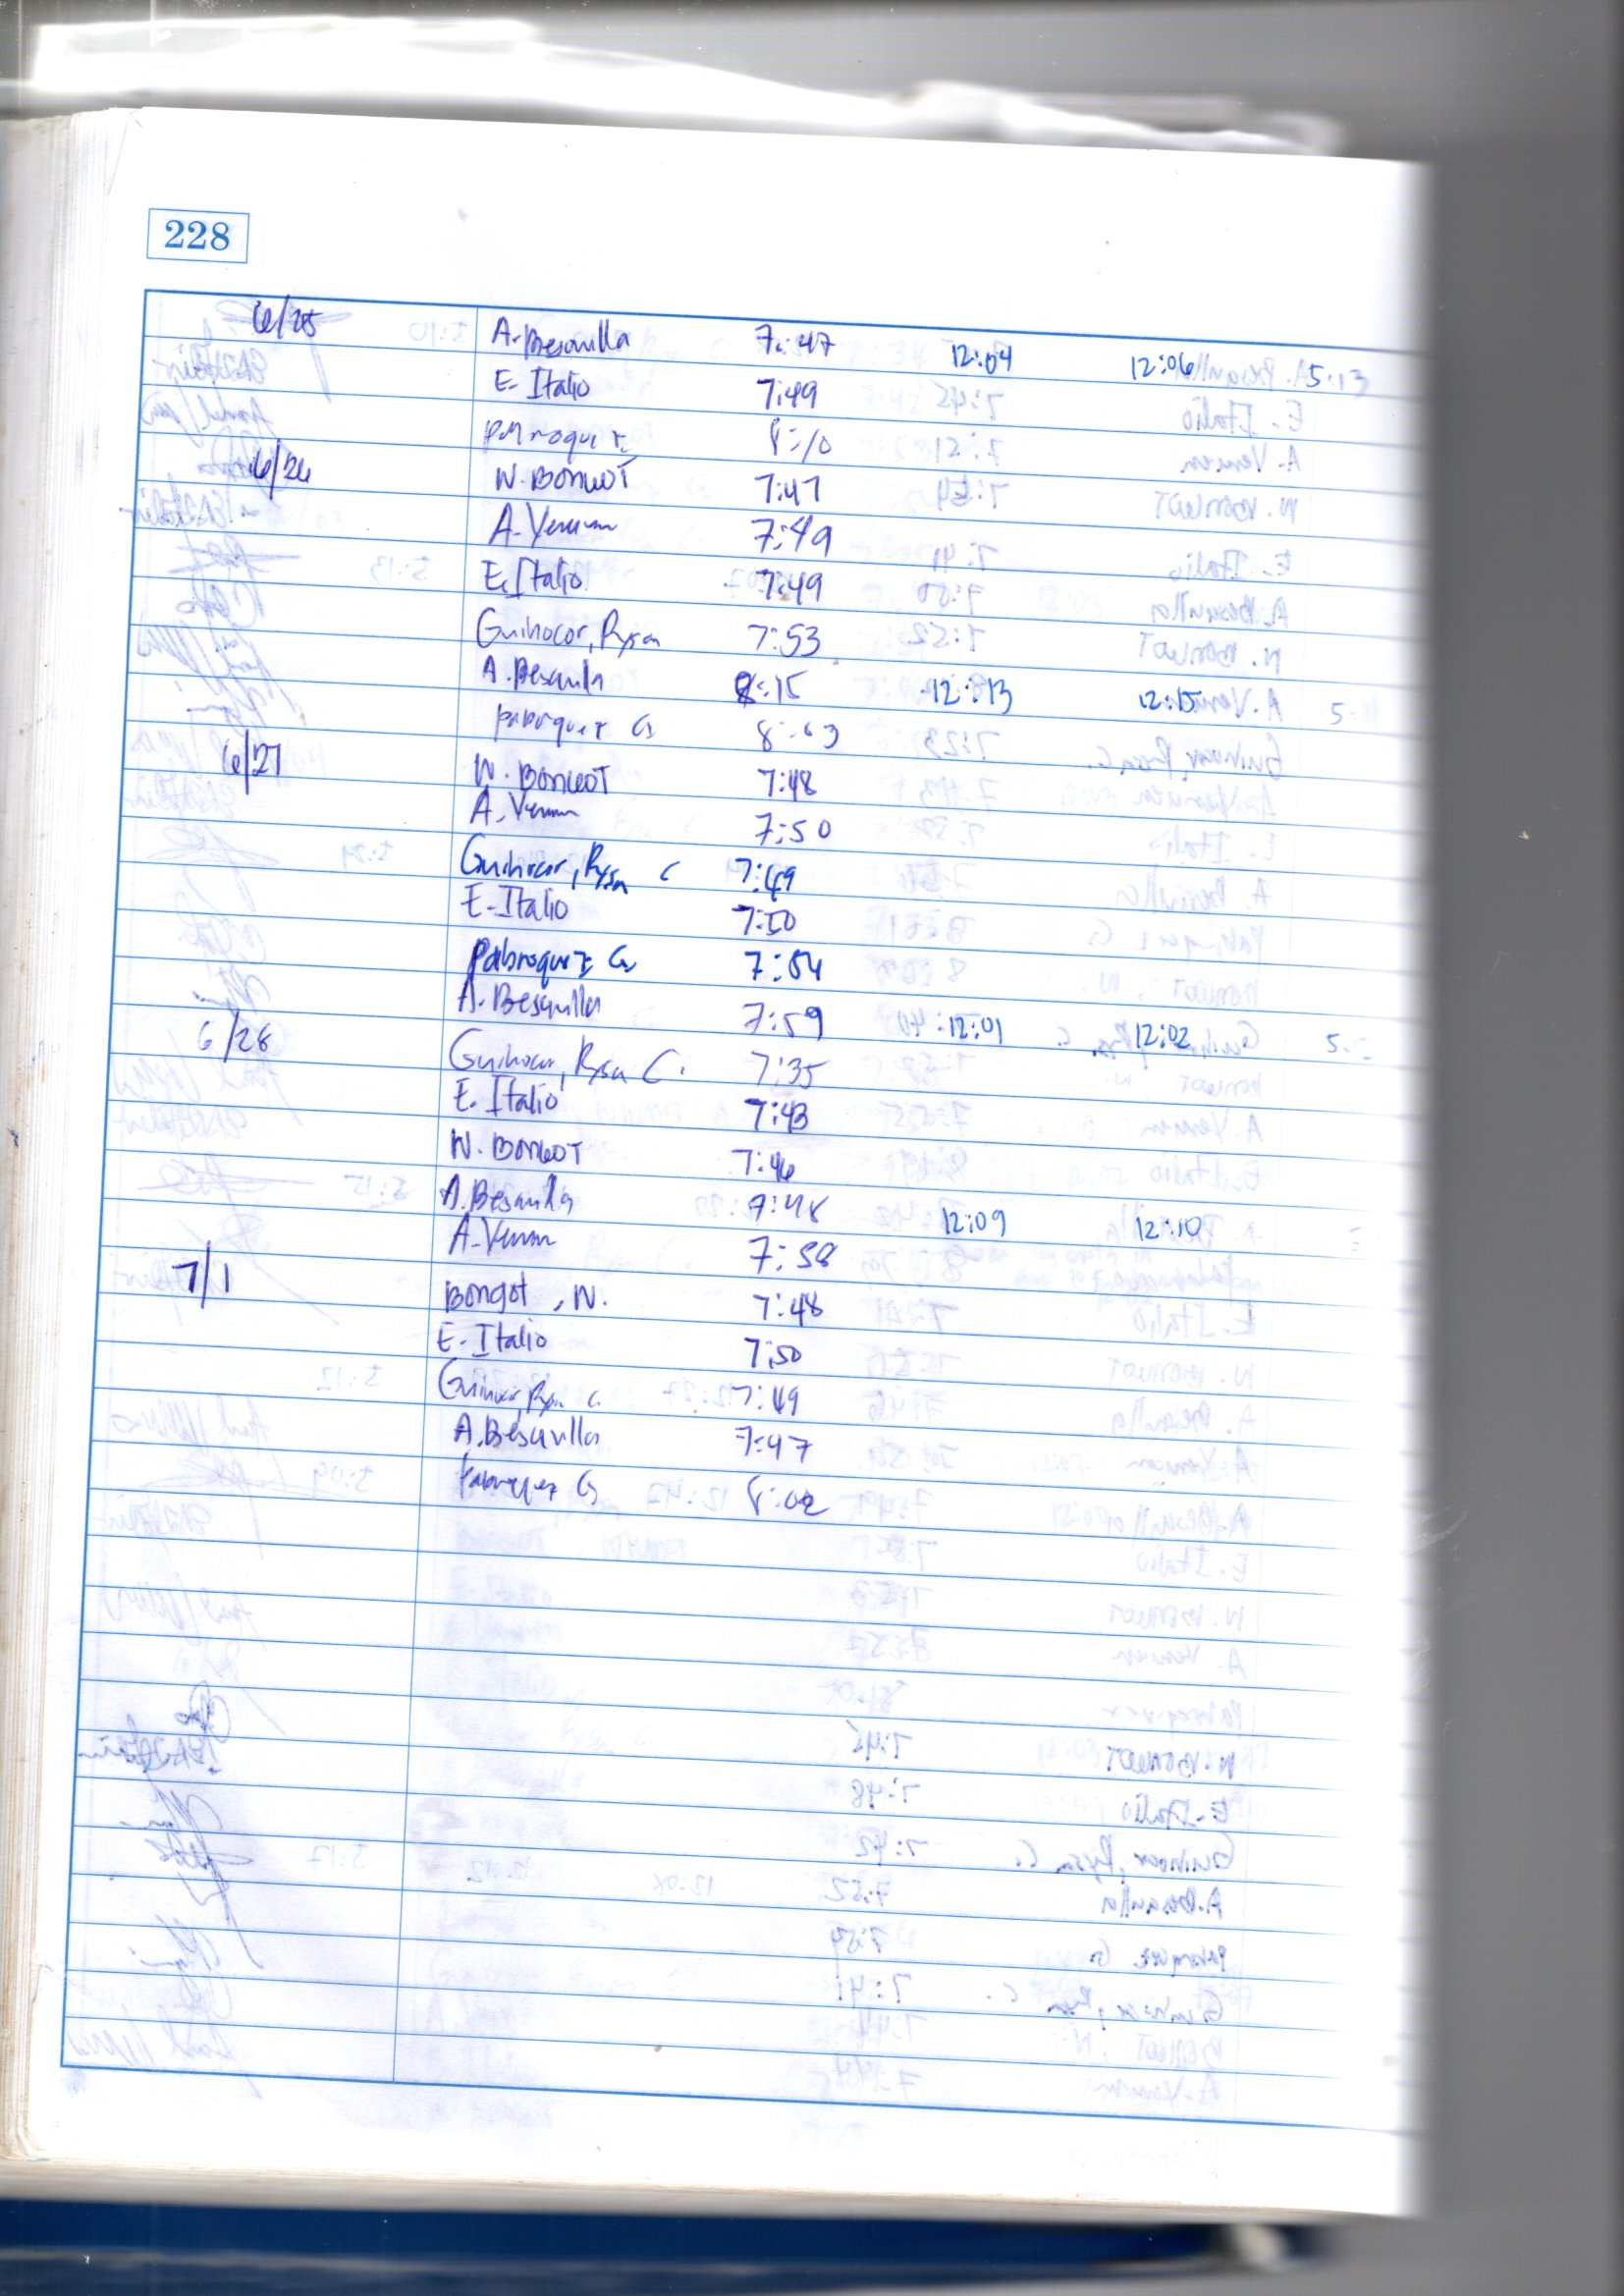 228
6/25 A. Besavilla 7:47 12:04 12:06 5:13
E. Italio 7:49
8:10
6/26 N. BONGOT 7:47
A. Venum 7:49
E. Italio 7:49
Guihocor, Rysa 7:53
A. Besavilla 8:15 12:13 12:15 5
Pabroquez G 8:03
6/27 N. BONGOT 7:48
A. Venum 7:50
Guihocor, Rysa C 7:49
E. Italio 7:50
Pabroquez G 7:54
A. Besavilla 7:59 12:01 12:02 5
6/28 Guihocor, Rysa C. 7:35
E. Italio 7:43
N. BONGOT 7:46
A. Besavilla 7:48 12:09 12:10
A. Venum 7:58
7/1 Bongot, N. 7:48
E. Italio 7:50
Guihocor, Rysa C. 7:49
A. Besavilla 7:47
Pabroquez G 8:02